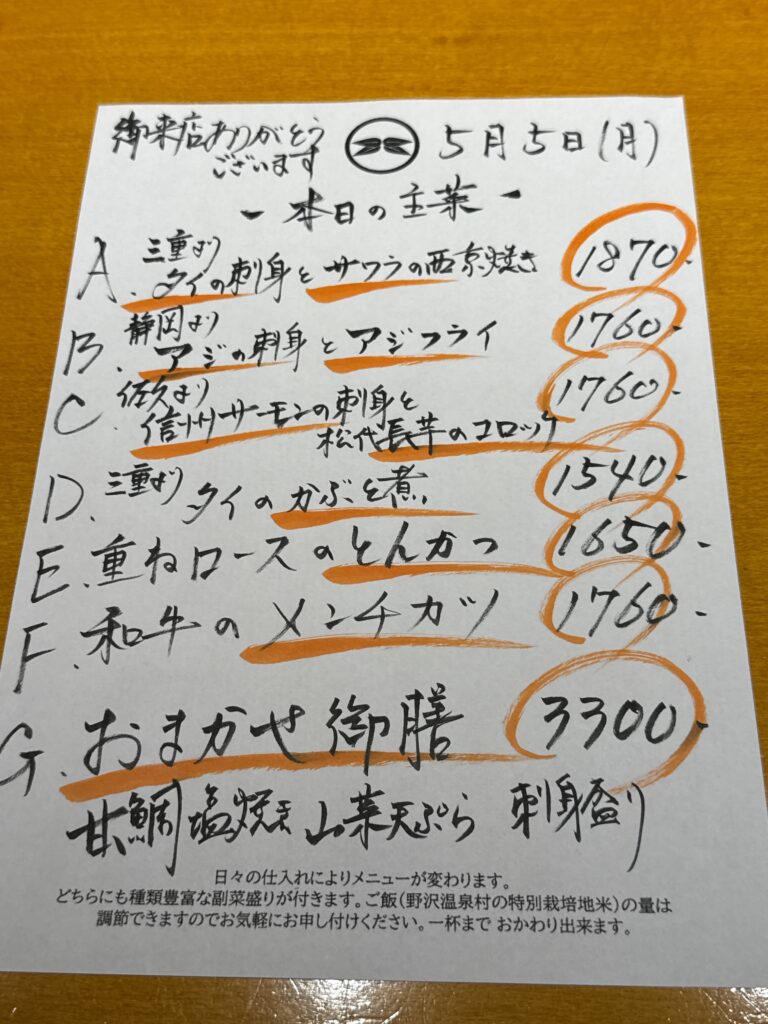 御来店ありがとう
ございます
5月5日(月)
- 本日の主菜 -
A. 三重より
タイの刺身とサワラの西京焼き 1870-
B. 静岡より
アジの刺身とアジフライ 1760-
C. 佐久より
信州サーモンの刺身と
松代長芋のコロッケ 1760-
D. 三重より タイのかぶと煮 1540-
E. 重ねロースのとんかつ 1650-
F. 和牛のメンチカツ 1760-
G. おまかせ御膳 3300-
甘鯛塩焼き 山菜天ぷら 刺身盛り
日々の仕入れによりメニューが変わります。
どちらにも種類豊富な副菜盛りが付きます。ご飯(野沢温泉村の特別栽培地米)の量は
調節できますのでお気軽にお申し付けください。一杯まで おかわり出来ます。